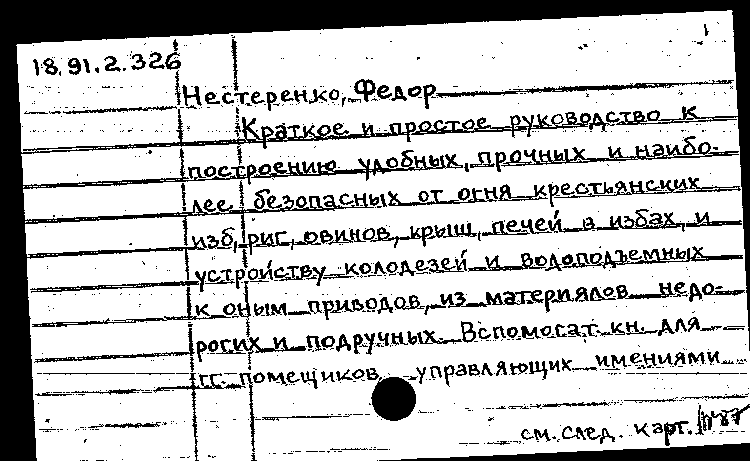 1
18.91.2.326
Нестеренко, Федор
Краткое и простое руководство к
построению удобных, прочных и наибо-
лее безопасных от огня крестьянских
изб, риг, овинов, крыш, печей в избах, и
устройству колодезей и водоподъемных
к оным приводов, из материялов недо-
рогих и подручных. Вспомогат. кн. для
гг. помещиков, управляющих имениями
см. след. карт.